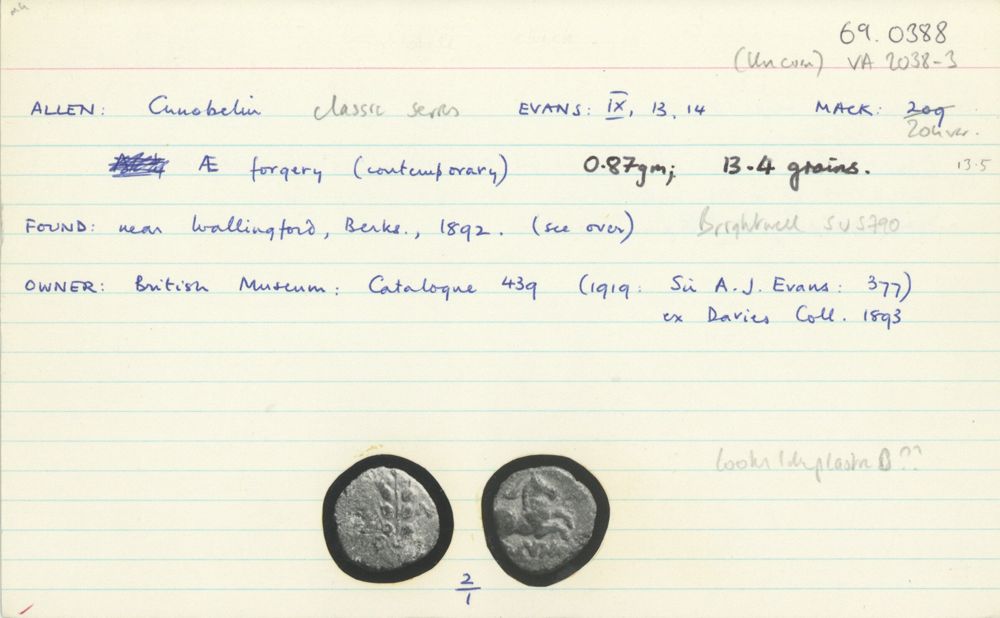 69.0388
(Uncert) VA 2038-3
ALLEN: Cunobelin classic series EVANS: IX, 13, 14 MACK: 209
204 var.
Æ forgery (contemporary) 0.87gm; 13.4 grains. 13.5
FOUND: near Wallingford, Berks., 1892. (see over) Brightwell SU5790
OWNER: British Museum: Catalogue 439 (1919: Sir A.J. Evans: 377)
ex Davies Coll. 1893
looks like ??
2
1